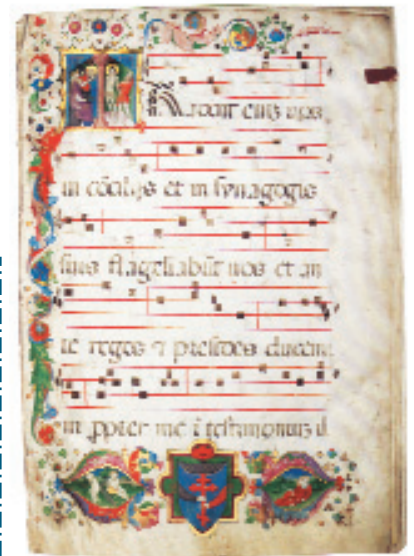 Tradent enim vos
in cōcilijs et in synagogis
suis flagellabūt uos et an
te reges ⁊ presides ducemi
ni ꝓpter me ī testimonium il